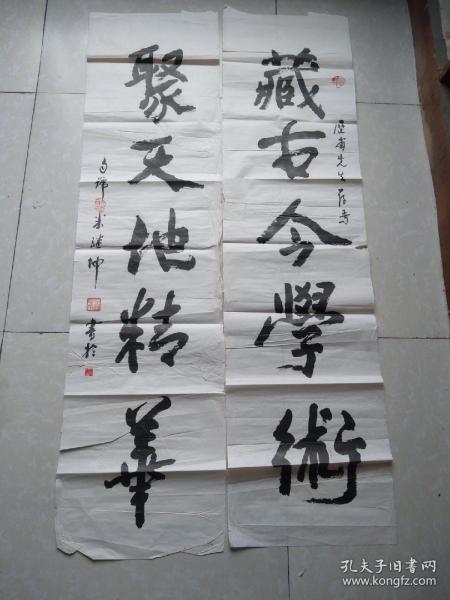 藏古今學術
聚天地精華
先生
書於
孔夫子旧书网
www.kongfz.com